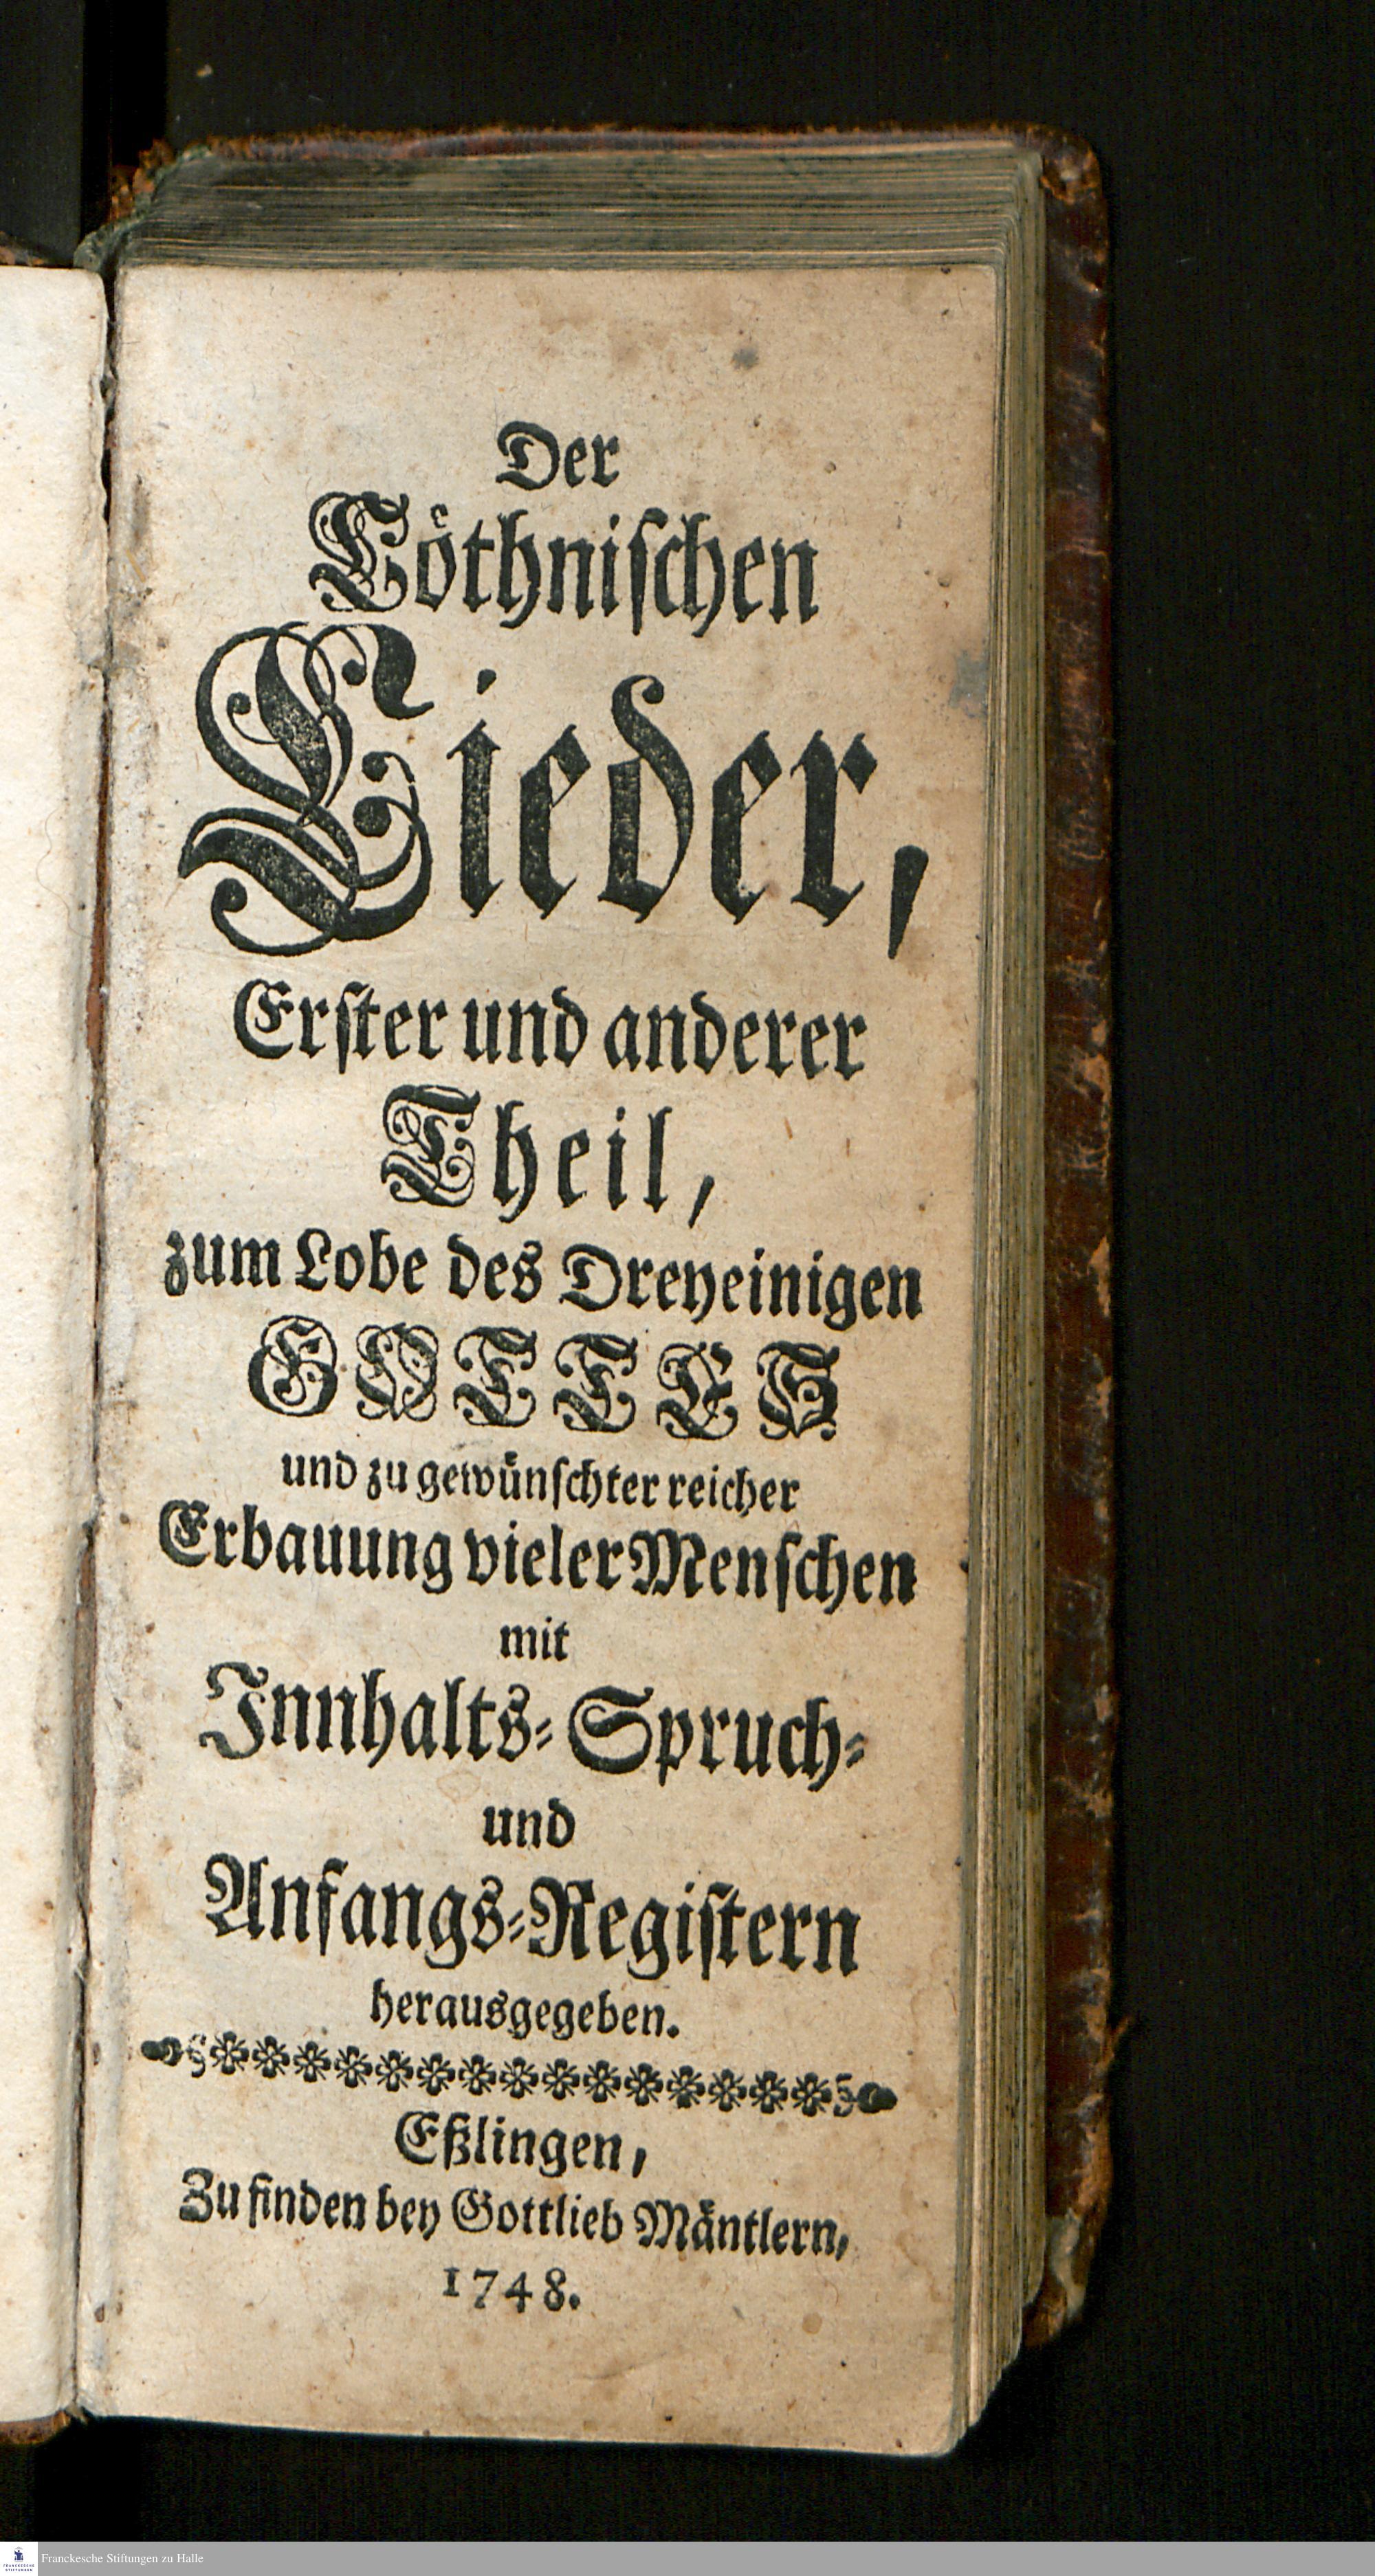 Der
Cöthnischen
Lieder,
Erster und anderer
Theil,
zum Lobe des Dreyeinigen
GOTTES
und zu gewünschter reicher
Erbauung vieler Menschen
mit
Innhalts- Spruch-
und
Anfangs-Registern
herausgegeben.
Eßlingen,
Zu finden bey Gottlieb Mäntlern,
1748.
FRANCKESCHE
STIFTUNGEN
Franckesche Stiftungen zu Halle